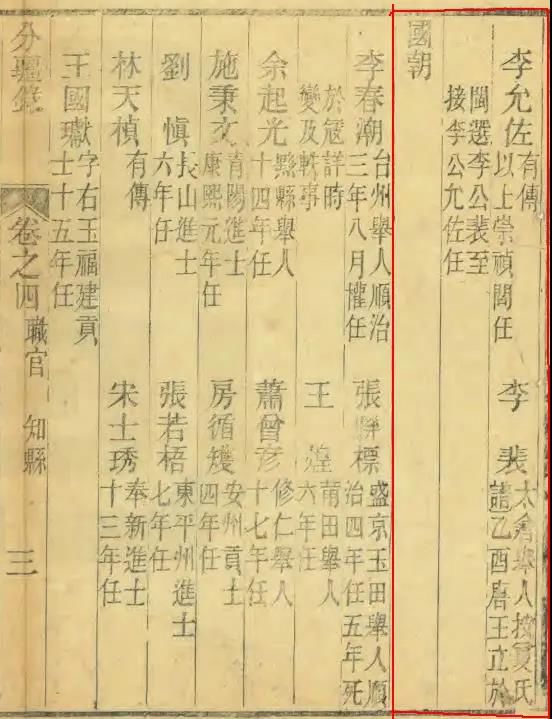 李允佐
有傳
以上崇禎間任
李裴
太倉舉人按夏氏
譜乙酉唐王立於
閩選李公裴至
接李公允佐任
國朝
李春潮
台州舉人順治
三年八月權任
張聯標
盛京玉田舉人順
治四年任五年死
於寇詳時
變及軼事
王煌
莆田舉人
六年任
余起光
黟縣舉人
十四年任
蕭曾彥
修仁舉人
十七年任
施秉文
青陽進士
康熙元年任
房循矱
安州貢士
四年任
劉慎
長山進士
六年任
張若梧
東平州進士
七年任
林天楨
有傳
宋士琇
奉新進士
十三年任
王國瓛
字右玉福建貢
士十五年任
分疆錄
卷之四
職官
知縣
三